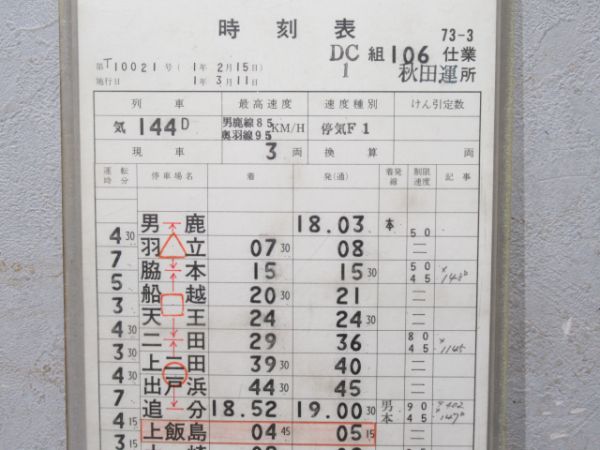 時刻表
73-3
DC組106仕業
1 秋田運所
第T10021号(1年2月15日)
施行日 1年3月11日
列車 最高速度 速度種別 けん引定数
気144D 男鹿線85 奥羽線95 KM/H 停気F1
現車 3両 換算 両
運転時分 停車場名 着 発(通) 着発線 制限速度 記事
男鹿 18.03 本
4 30 50
羽立 07 30 08 =
7
脇本 15 15 30 50 45
5
船越 20 30 21 =
3
天王 24 24 30 =
4 30
二田 29 36 80 45 1145
3 30
上二田 39 30 40 =
4 30
出戸浜 44 30 45 =
7
追分 18.52 19.00 30 男本 90 45
4 15
上飯島 04 45 05 15
3 15